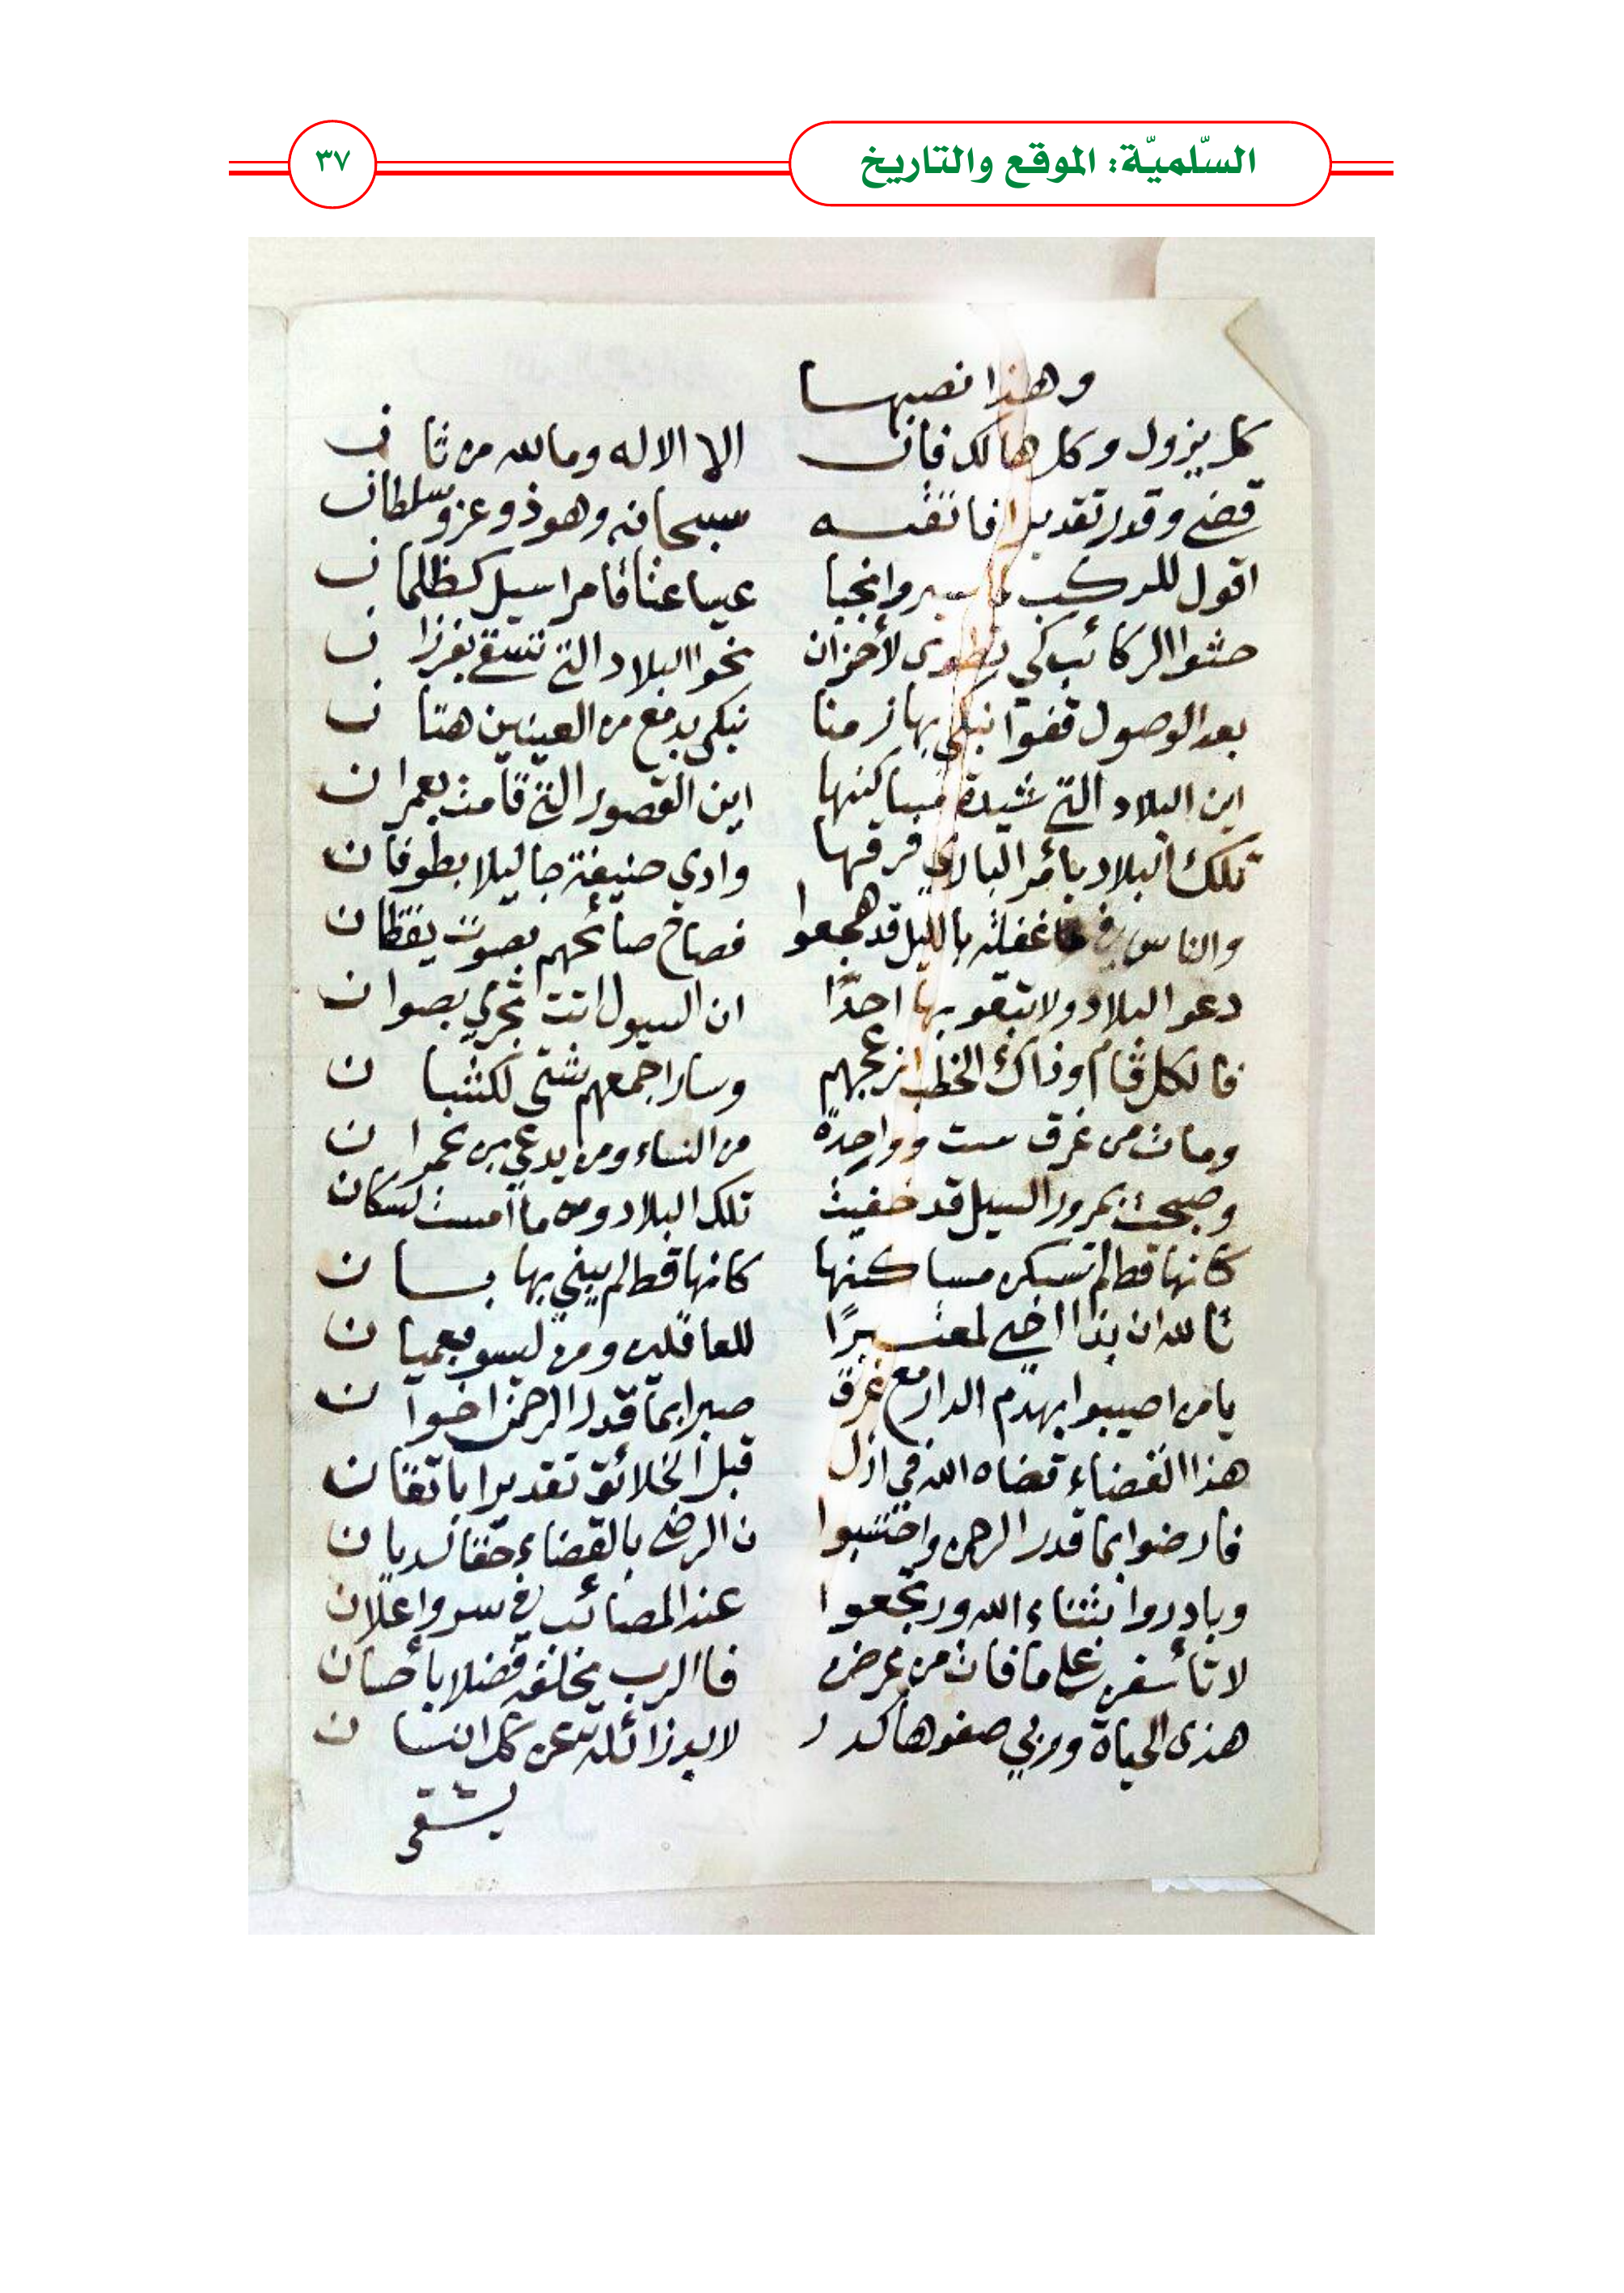 السّلميّة: الموقع والتاريخ
٣٧
وهذا نصبها
كل يزول وكل هالك فان الا الاله وما لله من ثان
قضى وقدر تقديرا فاتقنه سبحانه وهو ذو عز وسلطان
اقول للركب لما سيروا نجبا عيسا عتاقا مراسيل كظلمان
حثوا الركائب كي تطوى لأحزان نحوا البلاد التي تسقى بغرزان
بعد الوصول قفوا نبكي بها زمنا نبكي بدمع من العينين هتان
اين البلاد التي شيدة مساكنها اين القصور التي قامت بعمران
تلك البلاد بأمر الباري فرقها وادي حنيفة جا ليلا بطوفان
والناس في غفلة بالليل قد هجعوا فصاح صائحهم بصوت يقظان
دعو البلاد ولا تبقو بها احدًا ان السيول اتت تجري بصوان
فا لكل قام وذاك الخطب ازعجهم وسار اجمعهم شتى لكثبان
ومات من غرق ست وواحدة من النساء ومن يدعى بن عمران
وصبحت بمرور السيل قد خفيت تلك البلاد ومن ما امست لسكان
كانها قط لم تسكن مساكنها كانها قط لم يبني بها بسان
تا لله ان بذا اضحى لمعتبرًا للعاقلين ومن ليسو بعميان
يا من اصيبوا بهدم الدار مع غرق صبرا بما قدر الرحمن اخوان
هذا القضاء قضاه الله في ازل قبل الخلائق تقديرا باتقان
فارضوا بما قدر الرحمن واحتسبوا ن الرضى بالقضاء حقا لديان
وبادروا بثناء الله ورجعوا عند المصائب في سر واعلان
لا تأسفن على ما فات من عرض فا الرب يخلفه فضلا بأحسان
هذى الحياة وربي صفوها كدر لا بد زائلة عن كل انسان
يشقى